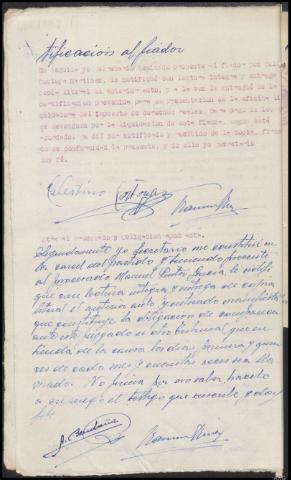 tificación al fiador
En seguida yo Secretario teniendo presente al fiador Don Celes
Santana Martinez, le notifiqué con lectura integra y entrega
copia literal el anterior auto, y a la vez le entregué de la
certificación prevenida para su presentación en la oficina li
quidadora del impuesto de derechos reales, para pago de los
que devenguen por la liquidación de esta fianza, según está
acordado, se dió por notificado y recibido de la copia, firman
do en conformidad la presente, y de ello yo Secretario
doy fé.
Celestino
Otra al procesado y obligación apud acta.
Seguidamente yo Secretario me constituí en
la carcel del Partido y teniendo presente
al procesado Manuel García, le notifi
qué con lectura integra y entrega de copia
literal el anterior auto, y enterado manifiesta
que constituye la obligación de comparecer
ante este Juzgado u otro tribunal que en
tienda de la causa los dias primero y quin
ce de cada mes y cuantas veces sea lla
mado. No firma por no saber, hacerlo
a su ruego el testigo que suscribe, y doy
fé